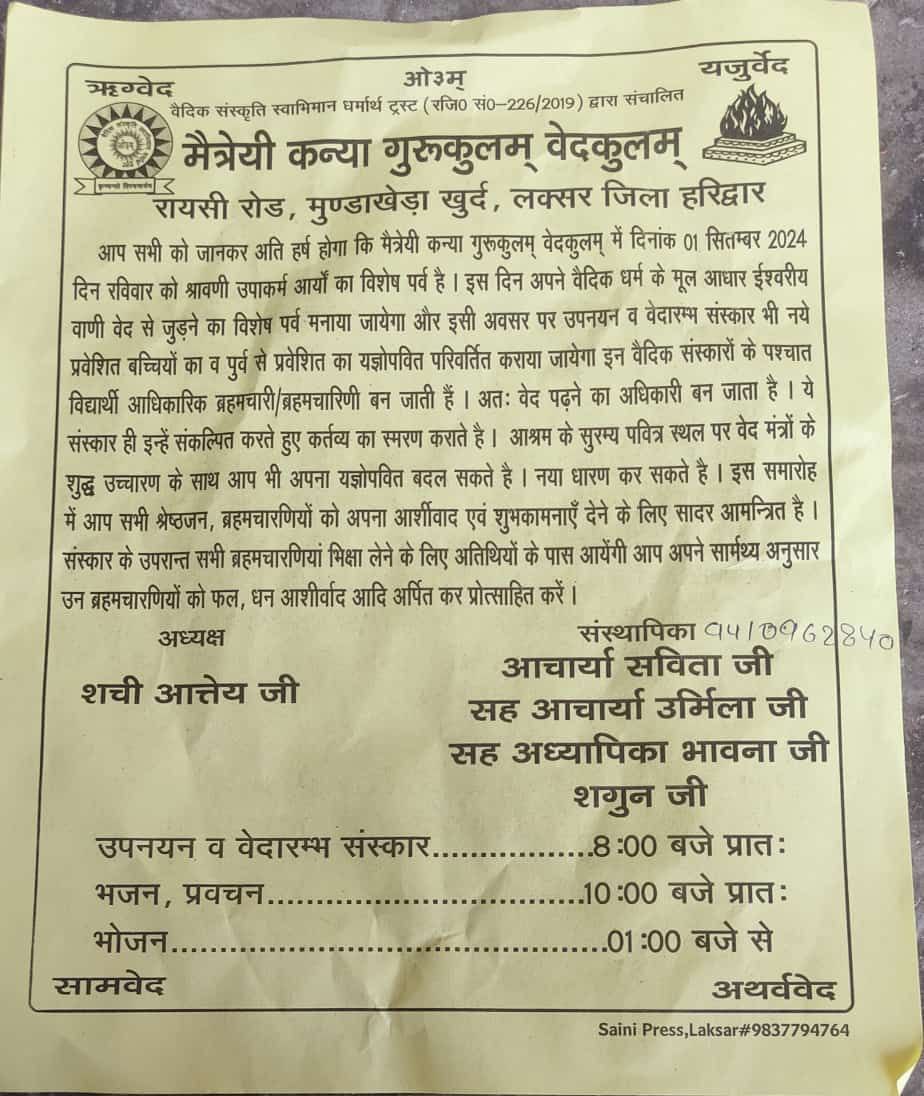 ओ३म्
ऋग्वेद
यजुर्वेद
वैदिक संस्कृति स्वाभिमान धर्मार्थ ट्रस्ट (रजि0 सं0-226/2019) द्वारा संचालित
मैत्रेयी कन्या गुरुकुलम् वेदकुलम्
रायसी रोड, मुण्डाखेड़ा खुर्द, लक्सर जिला हरिद्वार
आप सभी को जानकर अति हर्ष होगा कि मैत्रेयी कन्या गुरूकुलम् वेदकुलम् में दिनांक 01 सितम्बर 2024
दिन रविवार को श्रावणी उपाकर्म आर्यों का विशेष पर्व है । इस दिन अपने वैदिक धर्म के मूल आधार ईश्वरीय
वाणी वेद से जुड़ने का विशेष पर्व मनाया जायेगा और इसी अवसर पर उपनयन व वेदारम्भ संस्कार भी नये
प्रवेशित बच्चियों का व पुर्व से प्रवेशित का यज्ञोपवित परिवर्तित कराया जायेगा इन वैदिक संस्कारों के पश्चात
विद्यार्थी आधिकारिक ब्रहमचारी/ब्रहमचारिणी बन जाती हैं । अतः वेद पढ़ने का अधिकारी बन जाता है । ये
संस्कार ही इन्हें संकल्पित करते हुए कर्तव्य का स्मरण कराते है । आश्रम के सुरम्य पवित्र स्थल पर वेद मंत्रों के
शुद्ध उच्चारण के साथ आप भी अपना यज्ञोपवित बदल सकते है । नया धारण कर सकते है । इस समारोह
में आप सभी श्रेष्ठजन, ब्रहमचारणियों को अपना आर्शीवाद एवं शुभकामनाएँ देने के लिए सादर आमन्त्रित है ।
संस्कार के उपरान्त सभी ब्रहमचारणियां भिक्षा लेने के लिए अतिथियों के पास आयेंगी आप अपने सार्मथ्य अनुसार
उन ब्रहमचारणियों को फल, धन आशीर्वाद आदि अर्पित कर प्रोत्साहित करें ।
अध्यक्ष
शची आत्तेय जी
संस्थापिका 9410962840
आचार्या सविता जी
सह आचार्या उर्मिला जी
सह अध्यापिका भावना जी
शगुन जी
उपनयन व वेदारम्भ संस्कार.................8:00 बजे प्रातः
भजन, प्रवचन.................................10:00 बजे प्रातः
भोजन.............................................01:00 बजे से
सामवेद
अथर्ववेद
Saini Press,Laksar#9837794764